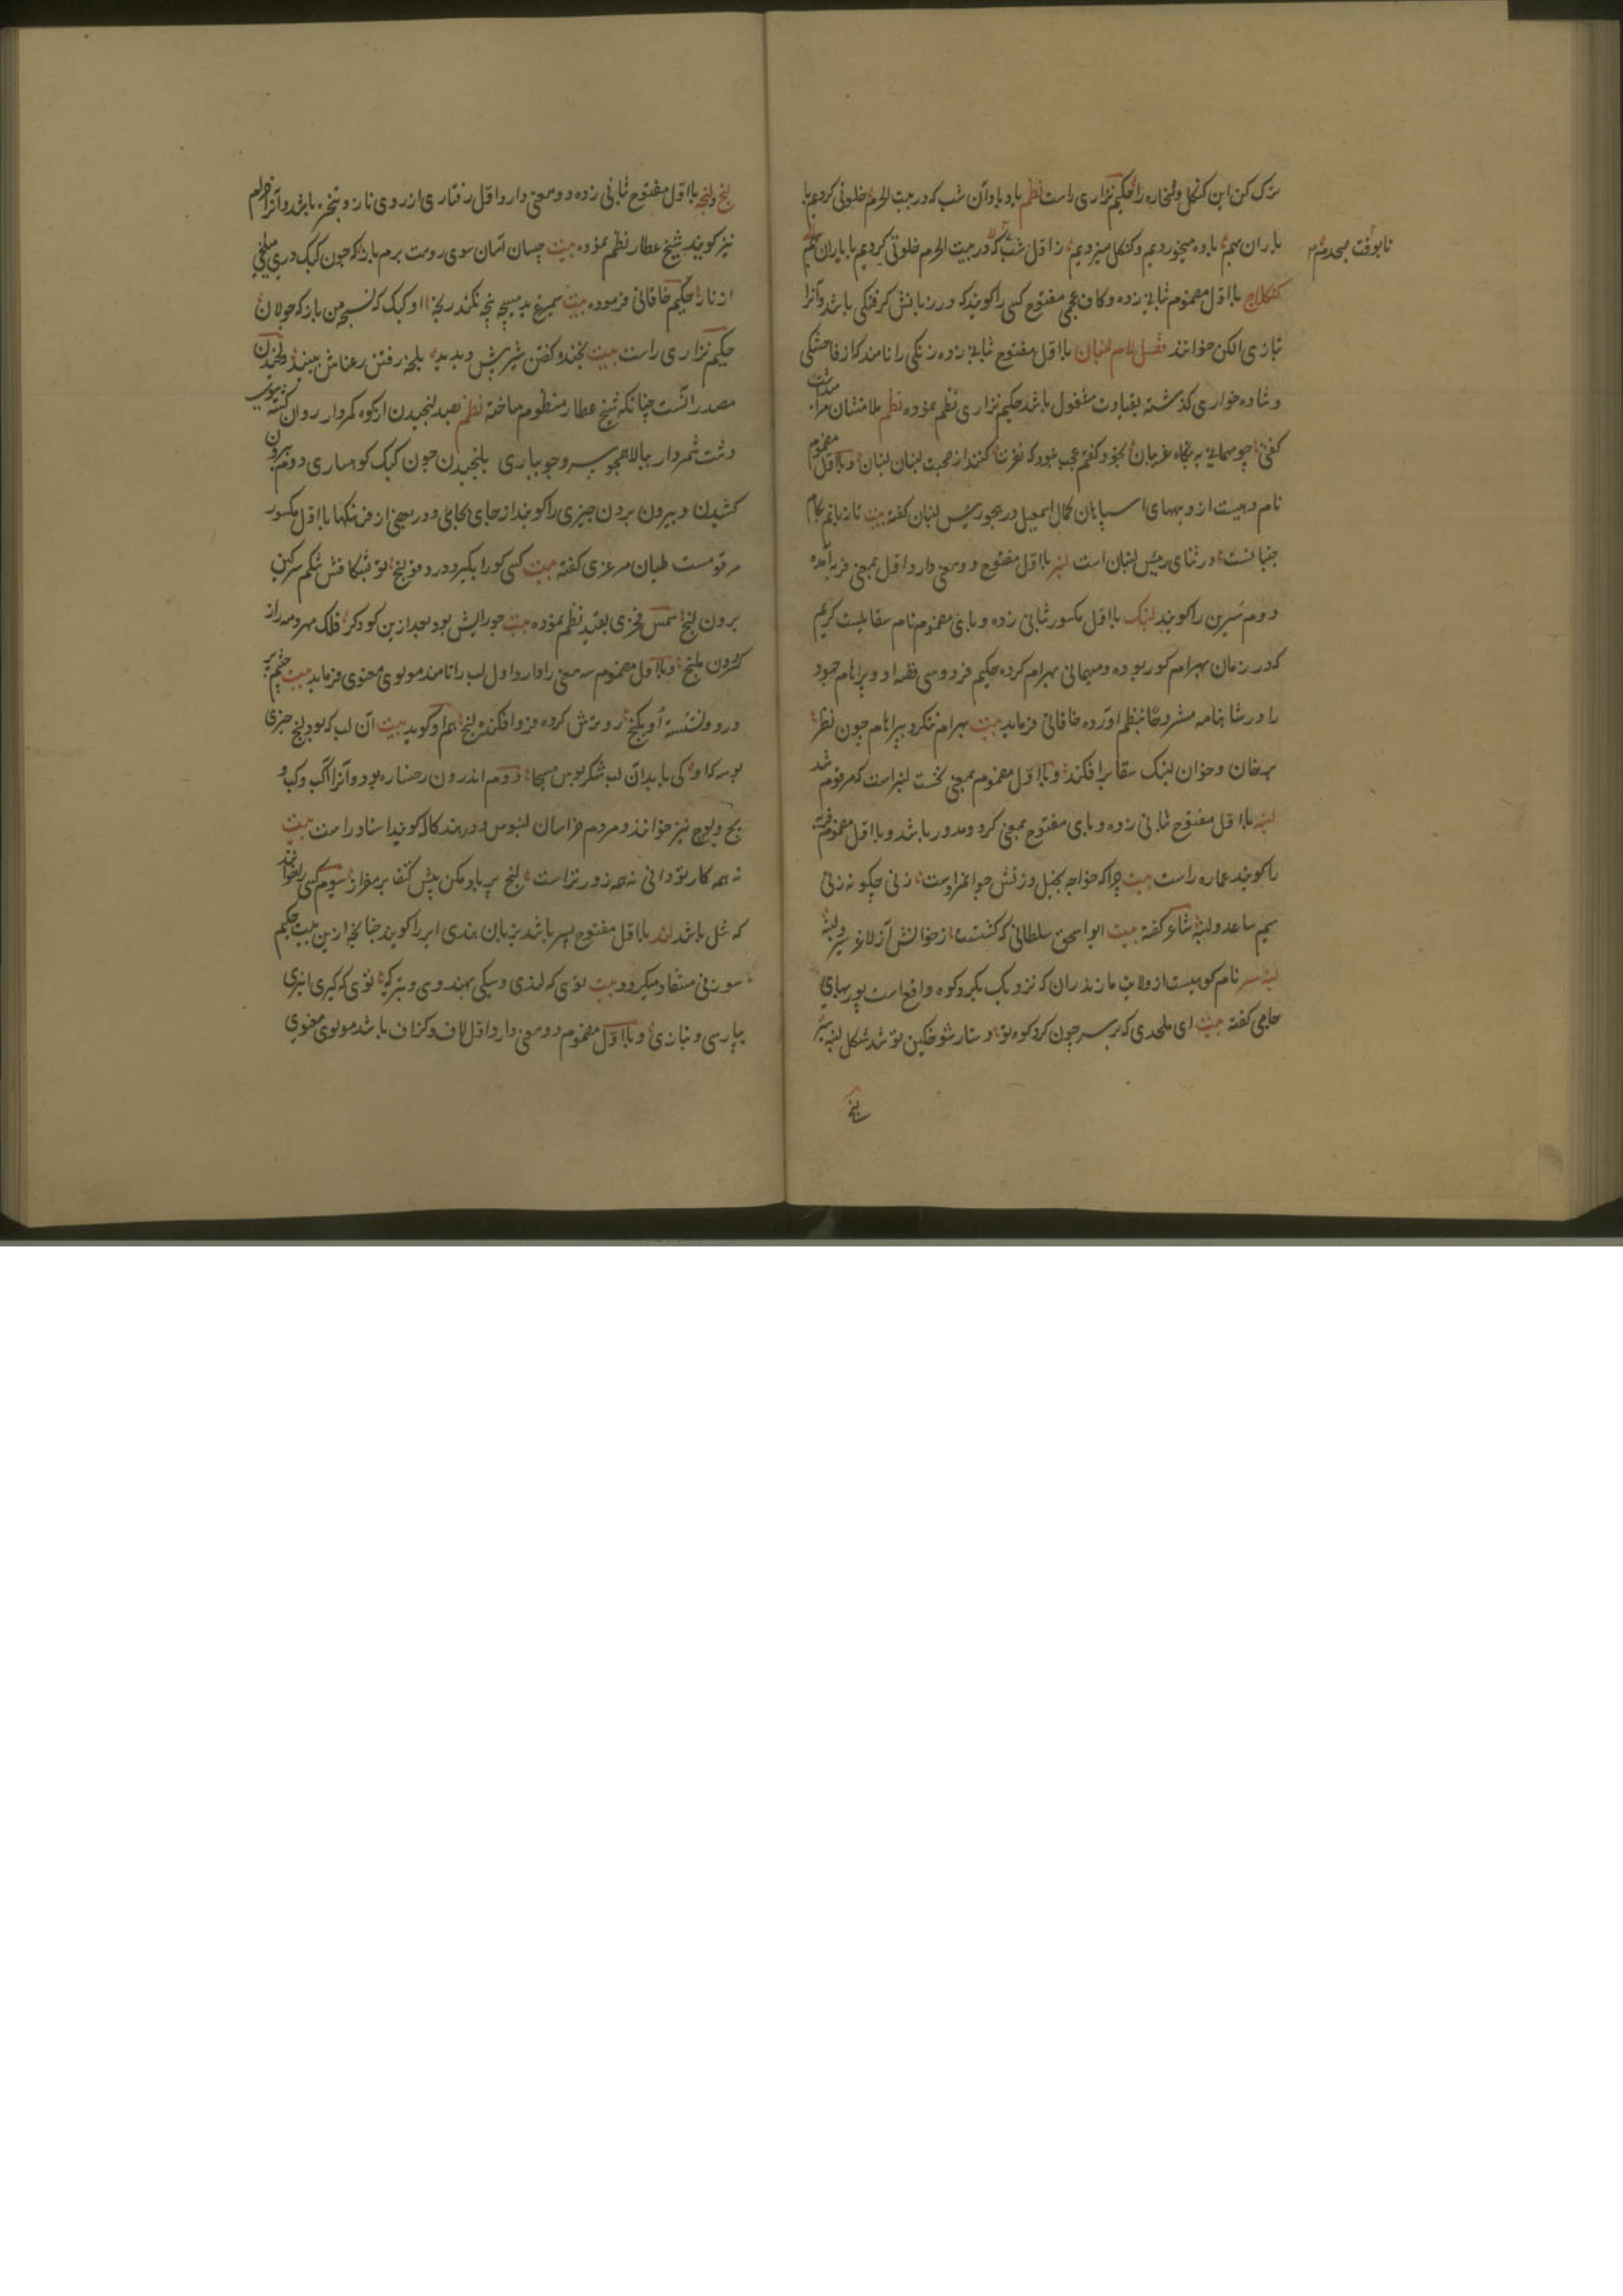 ترک کن این کنکل و مخاره را حکیم نزاری راست نظم یاد باد آن شب که در بیت الحرم خلوتی کردیم با
یاران بهم باده میخوردیم و کنکل میزدیم ز اول شب که در بیت الحرم خلوتی کردیم با یاران بهم
تا بوقت صبحدم
کنکلاج با اول مضموم ثانی زده و کاف عجمی مفتوح کسی را کویند که در زبانش کرفتکی باشد و آنرا
بتازی الکن خوانند فصل لام لنبان با اول مفتوح ثانی زده زنکی را نامند که از فاحشکی
و شاده خواری کذشته بقیادت مشغول باشد حکیم نزاری نظم نموده نظم ملامتشان مرا
کفتی چو مهمانی به بنکاه غریبان بخود کفتم عجب نبود که نفرت کنند از صحبت لنبان لنبان و با اول مضموم
نام دهیست از دیههای اسپاهان کمال اسمعیل در هجو رئیس لنبان کفته بیت تا زبانم بکام
جنبانست در ثنای رئیس لنبان است لنبر با اول مفتوح دو معنی دارد اول بمعنی فربه آمده
دوم سرین را کویند لنبک با اول مکسور ثانی زده و بای مضموم نام سقاییست کریم
که در زمان بهرام کور بوده و میهمانی بهرام کرده حکیم فردوسی قصه او و براهام جهود
را در شاهنامه مشروحا بنظم آورده خاقانی فرماید بیت بهرام ننکرد ببراهام چون نظر
بر خان و خوان لنبک سقا برافکند و با اول مضموم بمعنی نخست لنبر است که مرقوم شد
لنبه با اول مفتوح ثانی زده و بای مفتوح بمعنی کرد و مدور باشد و با اول مضموم فربه
را کویند عماره راست بیت چرا که خواجه بخیل و زنش جوانمردست زنی چکونه زنی
سیم ساعد و لنبه شاعر کفته بیت ابواسحق سلطانی که کشتست ز خوانش آز لاغر سیر و لنبه
لنبه سر نام کوهیست از ولایت مازندران که نزدیک بکردکوه واقع است پوربهای
جامی کفته بیت ای ملحدی که بر سر چون کردکوه تو دستار شوخکین تو شد شکل لنبه سر
لنج
لنج و لنجه با اول مفتوح ثانی زده دو معنی دارد اول رفتاری از روی ناز و تبختر باشد و آنرا خرام
نیز کویند شیخ عطار نظم نموده بیت چسان آسان سوی دوست برم باز که چون کبک دری میلنجی
از ناز حکیم خاقانی فرموده بیت سیمرغ به پنجه نکند او کبک که من باز که جولان
حکیم نزاری راست بیت بخنده کفتن شیرینش و بدیده بلنجه رفتن رعناش ببینید و لنجیدن
مصدر آنست چنانکه شیخ عطار منظوم ساخته نظم بصد لنجیدن از کوه کمردار روان کشته بسوی
دشت ببالا همچو سرو جویباری بلنجیدن چون کبک کوهساری دوم بیرون
کشیدن و بیرون بردن چیزی را کویند از جای بجائی و در بعضی از فرهنکها با اول مکسور
مرقومست طیان مرغزی کفته بیت کسی کو را بکیرد درد قولنج تو بشکافش شکم سرکین
برون لنج شمس فخری بقید نظم نموده بیت بود بعد ازین کو دکر فلک مهر و مه را از
کردون ملنج و با اول مضموم سه معنی را دارد اول لب را نامند مولوی معنوی فرماید بیت خشم بر
ترش کرده فرو افکنده لنج هم او کوید بیت آن لب که بود
بوسه کاه او کی یابد آن لب شکربوس مسیحا دوم اندرون رخساره بود و آنرا آکب و کب و
بج و لوج نیز خوانند و مردم خراسان لنبوس و در هند کاله کویند استاد راست بیت
نه همه کار تو دانی نه همه زور تراست لنج پر باد مکن بیش کتف بر مفراز سیوم کسی را خوانند
که شل باشد لند با اول مفتوح پسر باشد بزبان هندی ایر را کویند چنانچه ازین بیت حکیم
سوزنی مستفاد میکردد بیت توی که لندی و بهندوی و توی که کیری ایری
بپارسی و بتازی و با اول مضموم دو معنی دارد اول لاف و کزاف باشد مولوی معنوی